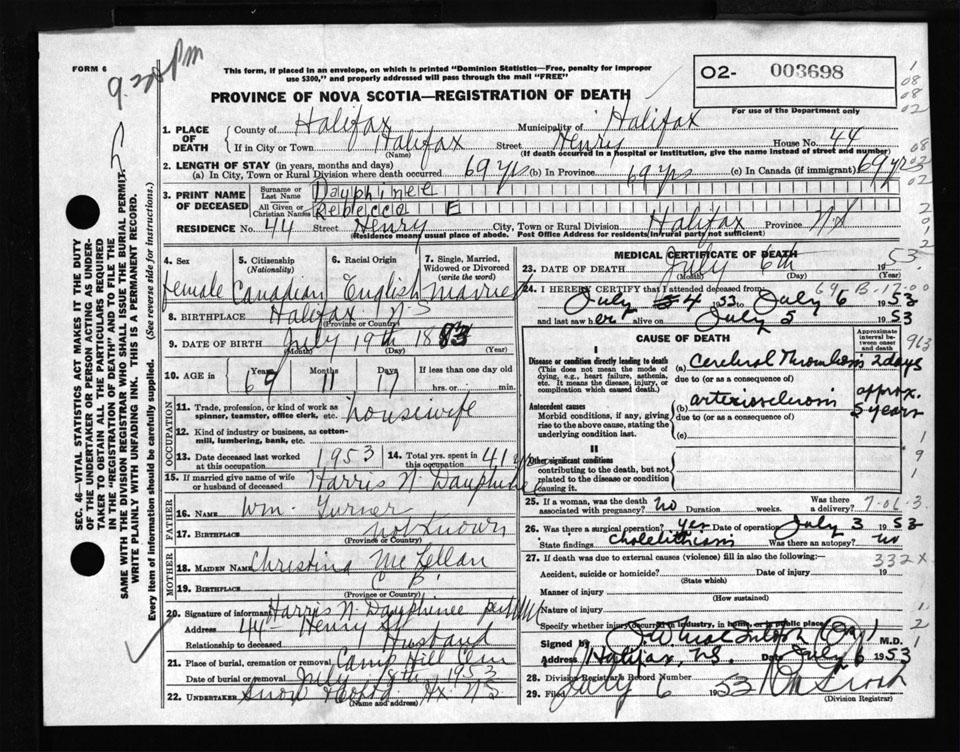 FORM 6
9.20 PM
This form, if placed in an envelope, on which is printed "Dominion Statistics—Free, penalty for improper use $300," and properly addressed will pass through the mail "FREE"
02- 003698
For use of the Department only
PROVINCE OF NOVA SCOTIA—REGISTRATION OF DEATH
1. PLACE OF DEATH { County of Halifax Municipality of Halifax
If in City or Town Halifax (Name) Street Henry House No. 44
(If death occurred in a hospital or institution, give the name instead of street and number)
2. LENGTH OF STAY (in years, months and days)
(a) In City, Town or Rural Division where death occurred 69 yrs (b) In Province 69 yrs (c) In Canada (if immigrant) 69 yrs
3. PRINT NAME OF DECEASED { Surname or Last Name Dauphinee
All Given or Christian Names Rebecca E
RESIDENCE No. 44 Street Henry City, Town or Rural Division Halifax Province N.S
(Residence means usual place of abode. Post Office Address for residents in rural party not sufficient)
4. Sex female
5. Citizenship (Nationality) Canadian
6. Racial Origin English
7. Single, Married, Widowed or Divorced (write the word) Married
8. BIRTHPLACE Halifax N.S (Province or Country)
9. DATE OF BIRTH July 19th 1883 (Month) (Day) (Year)
10. AGE in { Years 69 Months 11 Days 17 If less than one day old hrs. or min.
OCCUPATION
11. Trade, profession, or kind of work as spinner, teamster, office clerk, etc. housewife
12. Kind of industry or business, as cotton-mill, lumbering, bank, etc.
13. Date deceased last worked at this occupation 1953 14. Total yrs. spent in this occupation 41 yrs
15. If married give name of wife or husband of deceased Harris N. Dauphinee
FATHER
16. NAME Wm. Turner
17. BIRTHPLACE not known (Province or Country)
MOTHER
18. MAIDEN NAME Christina McLellan
19. BIRTHPLACE C. B. (Province or Country)
20. Signature of informant Harris N. Dauphinee per
Address 44 Henry St
Relationship to deceased Husband
21. Place of burial, cremation or removal Camp Hill Cem
Date of burial or removal July 8th 1953
22. UNDERTAKER Snow & Co Ltd Hx. N.S (Name and address)
MEDICAL CERTIFICATE OF DEATH
23. DATE OF DEATH July 6th 1953 (Month) (Day) (Year)
24. I HEREBY CERTIFY that I attended deceased from: 69 B-17-00
July 4 53 to July 6 1953
and last saw her alive on July 5 1953
CAUSE OF DEATH
Approximate interval between onset and death
I
Disease or condition directly leading to death
(This does not mean the mode of dying, e.g., heart failure, asthenia, etc. It means the disease, injury, or complication which caused death.)
(a) Cerebral Thrombosis 2 days
due to (or as a consequence of)
Antecedent causes
Morbid conditions, if any, giving rise to the above cause, stating the underlying condition last.
(b) arteriosclerosis approx. 5 years
due to (or as a consequence of)
(c)
II
Other significant conditions contributing to the death, but not related to the disease or condition causing it.
25. If a woman, was the death associated with pregnancy? no Duration weeks. Was there a delivery? 7-06-3
26. Was there a surgical operation? yes Date of operation July 3 1953
State findings Cholelithiasis Was there an autopsy? no
27. If death was due to external causes (violence) fill in also the following:—
332X
Accident, suicide or homicide? (State which) Date of injury 19
Manner of injury (How sustained)
Nature of injury
Specify whether injury occurred in industry, in home, or in public place
Signed by M.D.
Address Halifax, N.S. Date July 6 1953
28. Division Registrar's Record Number
29. Filed July 6 1953 (Division Registrar)
SEC. 46—VITAL STATISTICS ACT MAKES IT THE DUTY OF THE UNDERTAKER OR PERSON ACTING AS UNDERTAKER TO OBTAIN ALL THE PARTICULARS REQUIRED IN THE "REGISTRATION OF DEATH" AND TO FILE THE SAME WITH THE DIVISION REGISTRAR WHO SHALL ISSUE THE BURIAL PERMIT.
WRITE PLAINLY WITH UNFADING INK. THIS IS A PERMANENT RECORD.
Every item of information should be carefully supplied. (See reverse side for instructions.)